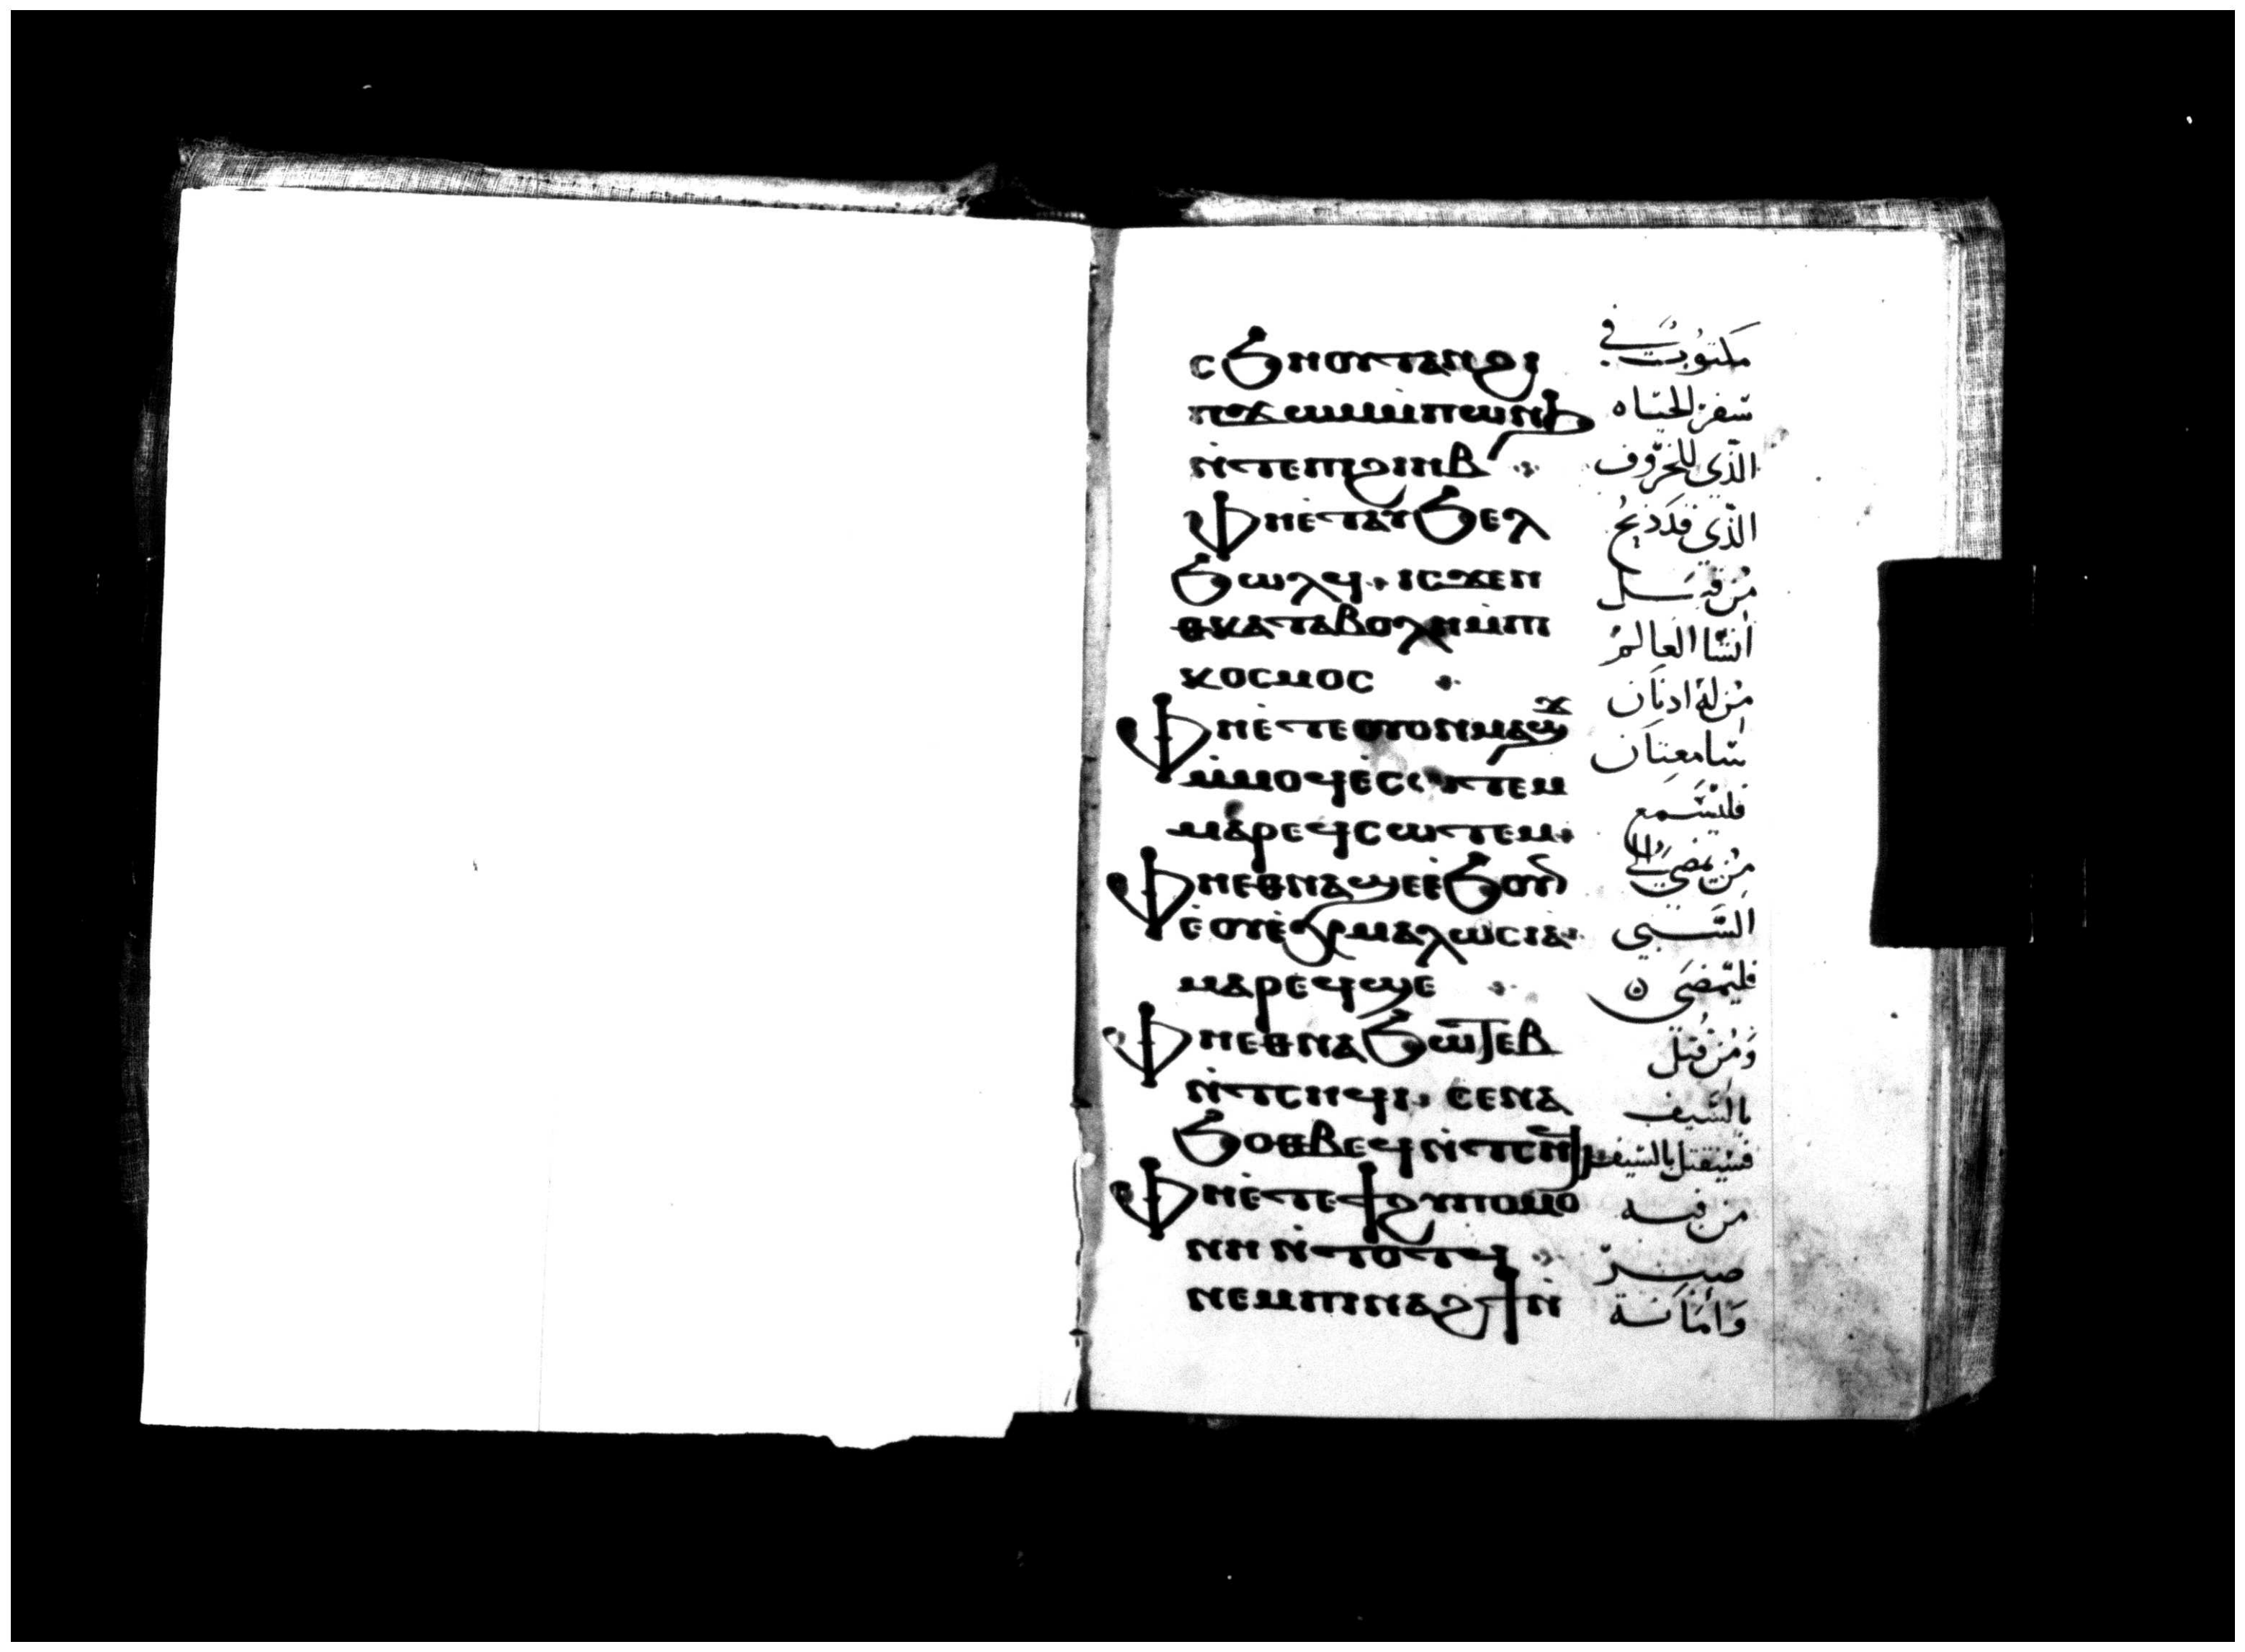 ⲥϧⲏⲟⲩⲧⲁⲛϩⲓ
ⲡϫⲱⲙⲙ̀ⲡⲱⲛϧ
ⲛ̀ⲧⲉⲡϩⲓⲏⲃ
ⲫⲏⲉ̀ⲧⲁⲩϧⲉⲗ
ϧⲱⲗϥ ⲓⲥϫⲉⲛ
ⲑⲕⲁⲧⲁⲃⲟⲗⲏⲙ̀ⲡ
ⲕⲟⲥⲙⲟⲥ
ⲫⲏⲉ̀ⲧⲉⲟⲩⲟⲛⲙⲁϣϫ
ⲙ̀ⲙⲟϥⲉ̀ⲥⲱⲧⲉⲙ
ⲙⲁⲣⲉϥⲥⲱⲧⲉⲙ
ⲫⲏⲉⲑⲛⲁϣⲉⲉ̀ϧⲟⲩⲛ
ⲉ̀ⲟⲩⲉ̀ⲭⲙⲁⲗⲱⲥⲓⲁ
ⲙⲁⲣⲉϥϣⲉ
ⲫⲏⲉⲑⲛⲁϧⲱⲧⲉⲃ
ⲛ̀ⲧⲥⲏϥⲓ ⲥⲉⲛⲁ
ϧⲟⲑⲃⲉϥⲛ̀ⲧⲥⲏϥⲓ
ⲫⲏⲉ̀ⲧⲉϯϩⲩⲡⲟⲙⲟ
ⲛⲏ ⲛ̀ⲧⲟⲧϥ
ⲛⲉⲙⲡⲓⲛⲁϩϯⲛ̀
مكتوب في
سفر الحياه
الذي للخروف
الذي قد ذبح
من قبل
انشا العالم
من له ادنان
سامعتان
فليسمع
من يمضي الي
السبي
فليمضي
ومن قتل
بالسيف
فسيقتل بالسيف
من فيه
صبر
وامانة